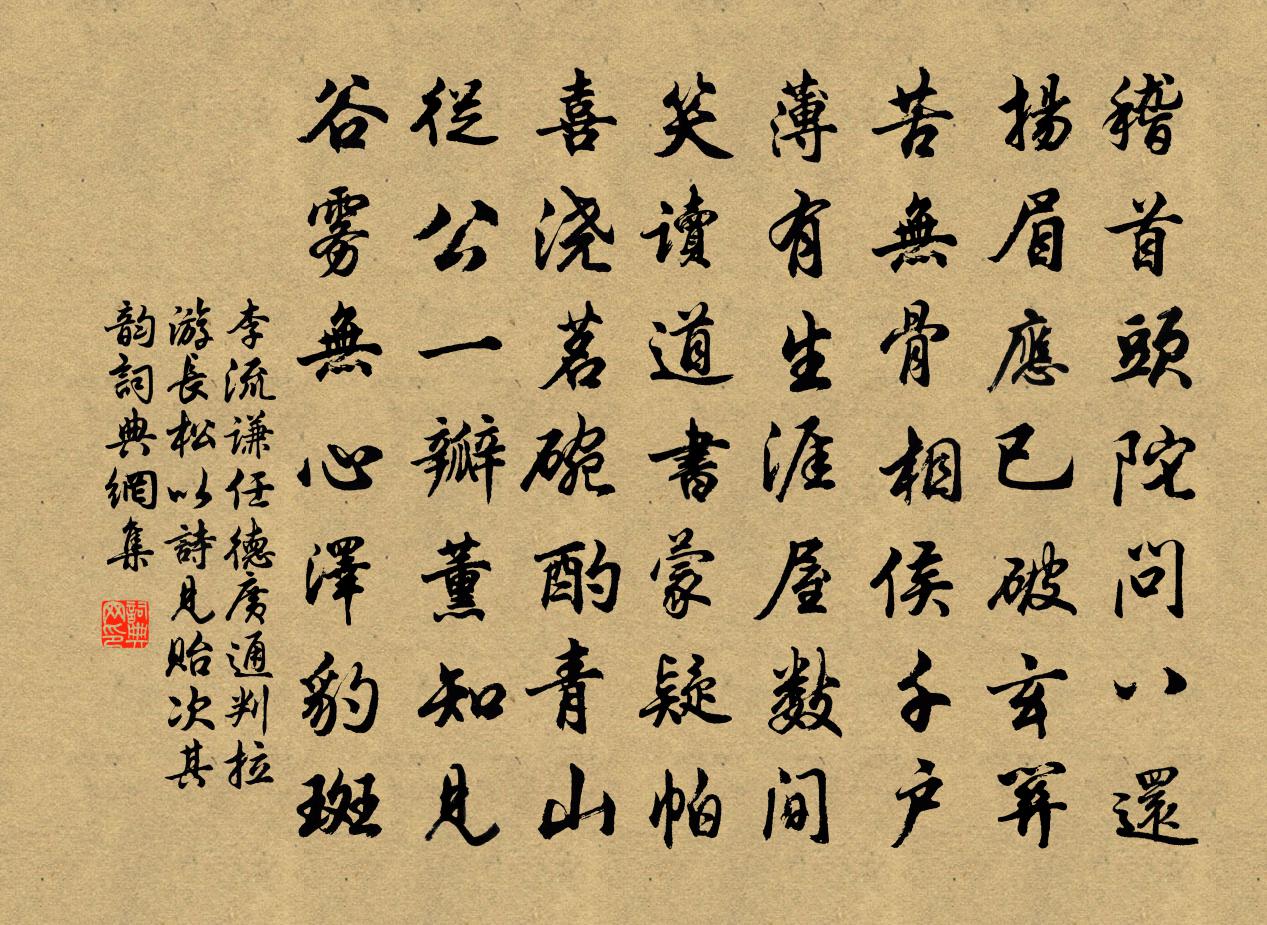 稽首頭陀問八還
揚眉應已破玄關
苦無骨相侯千户
薄有生涯屋数間
笑讀道書蒙疑帕
喜浇茗碗酌青山
從公一瓣薰知見
谷雾無心澤豹斑
李流谦任德广通判拉
游長松以詩見貽次其
韵詞典網集
詞典网印